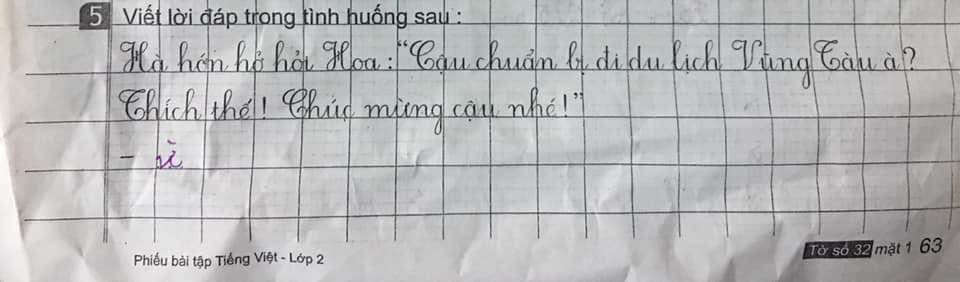 5 Viết lời đáp trong tình huống sau :
Hà hớn hở hỏi Hoa: "Cậu chuẩn bị đi du lịch Vũng Tàu à?
Thích thế! Chúc mừng cậu nhé!"
- ừ
Phiếu bài tập Tiếng Việt - Lớp 2
Tờ số 32 mặt 1 63